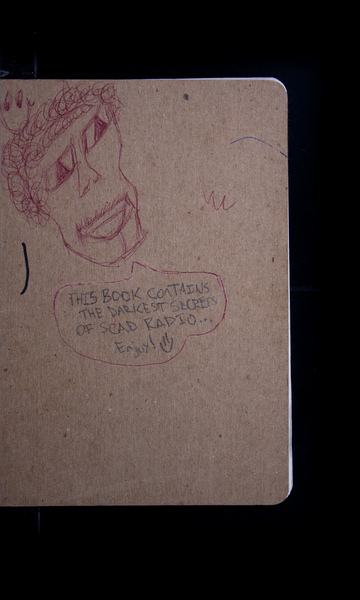 THIS BOOK CONTAINS
THE DARKEST SECRETS
OF SCAD RADIO...
Enjoy!